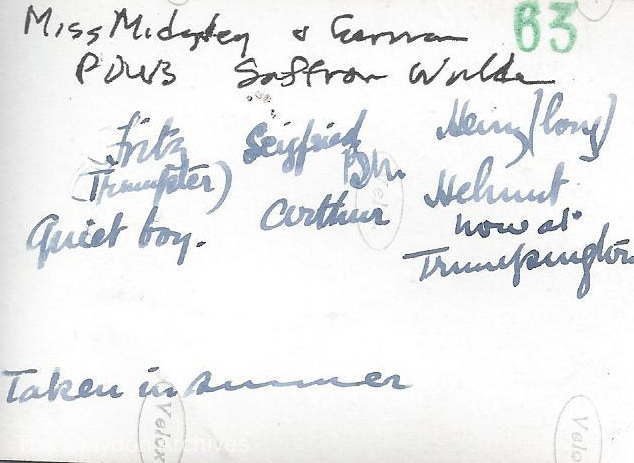 Miss Midgley & German 63
POWs Saffron Walden
Fritz Seigfried Heinz (long)
(Trumpster) Bln. Helmut
Quiet boy. Arthur now at
Trumpington
Taken in summer
Velox
Velox
Velox
Archives